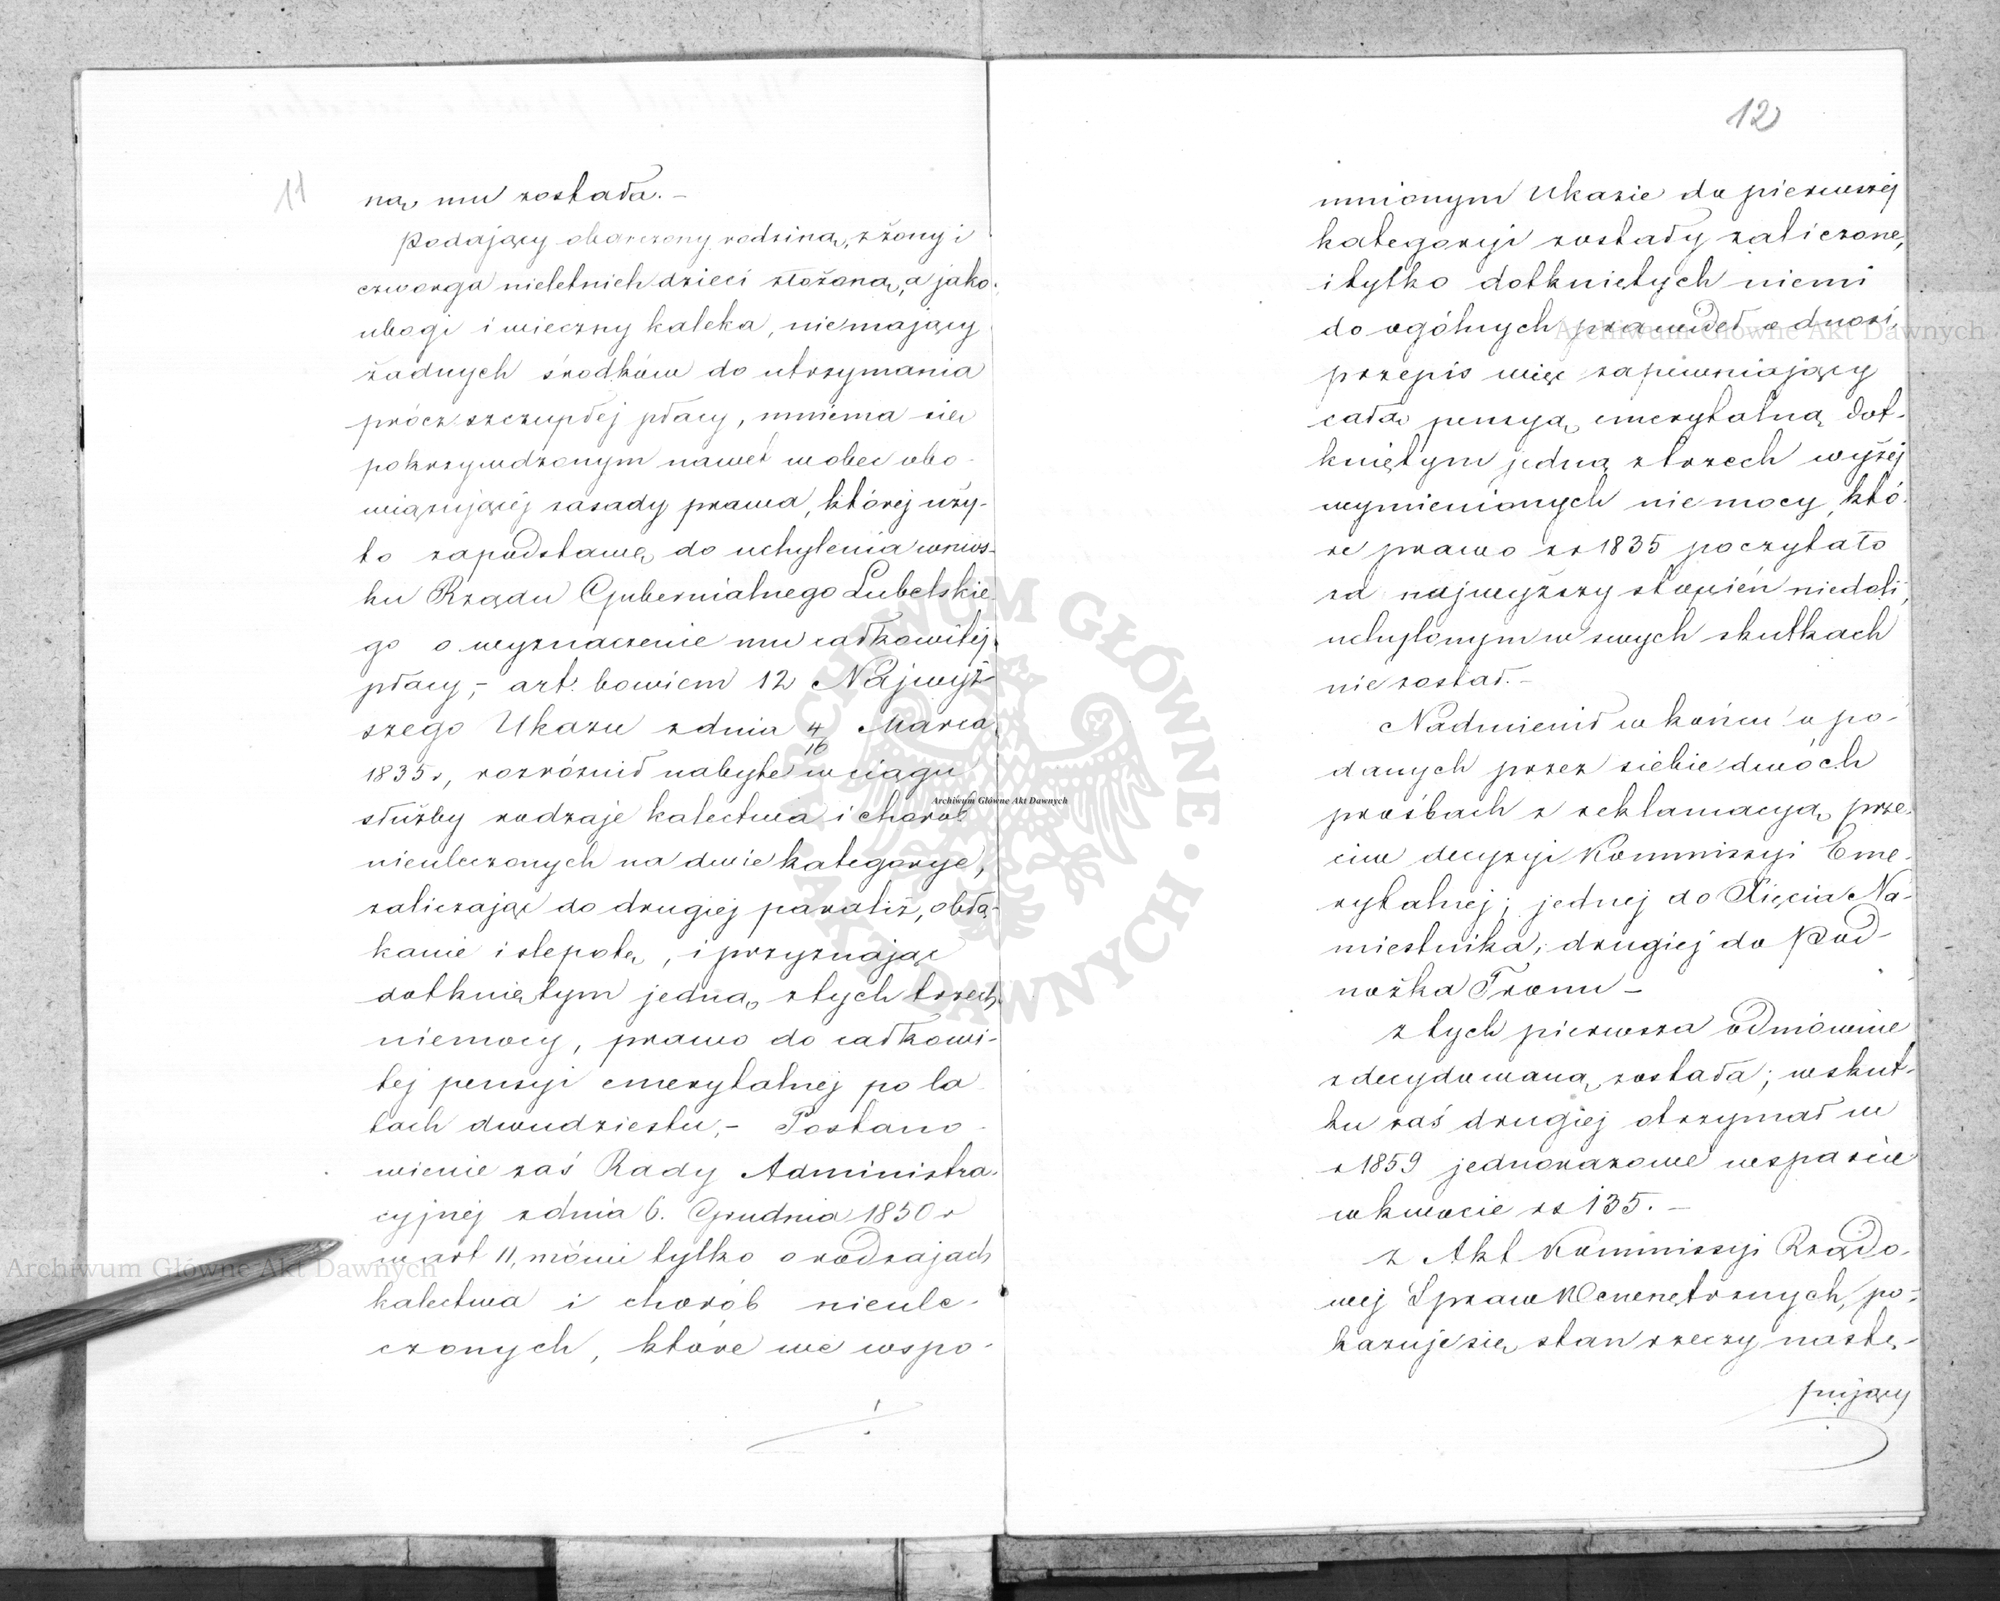 11
ną mu została. –
Podający obarczony rodziną, z żony i
czworga nieletnich dzieci złożoną, a jako
ubogi i wieczny kaleka, nie mający
żadnych środków do utrzymania
prócz szczupłej płacy, mniema się
pokrzywdzonym nawet wobec obo-
wiązującej zasady prawa, której uży-
to za podstawę do uchylenia wnios-
ku Rządu Gubernialnego Lubelskie-
go o wyznaczenie mu całkowitej
płacy, – art. bowiem 12 Najwyż-
szego Ukazu z dnia 4/16 Marca
1835 r, rozróżnił nabyte w ciągu
służby rodzaje kalectwa i chorób
nieuleczonych na dwie kategorye,
zaliczając do drugiej paraliż, obłą-
kanie i ślepotę, i przyznając
dotkniętym jedną z tych trzech
niemocy, prawo do całkowi-
tej pensyi emerytalnej po la-
tach dwudziestu, – Postano-
wienie zaś Rady Administra-
cyjnej z dnia 6. Grudnia 1850 r
w art 11, mówi tylko o rodzajach
kalectwa i chorób nieule-
czonych, które we wspo-
12
mnionym Ukazie do pierwszej
kategoryi zostały zaliczone,
i tylko dotkniętych niemi
do ogólnych prawideł odnosi,
przepis więc zapewniający
całą pensyą emerytalną dot-
kniętym jedną z trzech wyżej
wymienionych niemocy, któ-
re prawo z r 1835 poczytało
za najwyższy stopień niedoli,
uchylonym w swych skutkach
nie został. –
Nadmienił w końcu o po-
danych przez siebie dwóch
prośbach z reklamacyą prze-
ciw decyzyi Kommissyi Eme-
rytalnej; jednej do Xięcia Na-
miestnika, drugiej do Pod-
nóżka Tronu –
z tych pierwsza odmównie
zdecydowaną została; w skut-
ku zaś drugiej otrzymał w
r 1859 jednorazowe wsparcie
w kwocie rs 135. –
z Akt Kommissyi Rządo-
wej Spraw Wewnętrznych, po-
kazuje się stan rzeczy nastę-
pujący
Archiwum Główne Akt Dawnych
Archiwum Główne Akt Dawnych
Archiwum Główne Akt Dawnych
ARCHIWUM GŁÓWNE AKT DAWNYCH